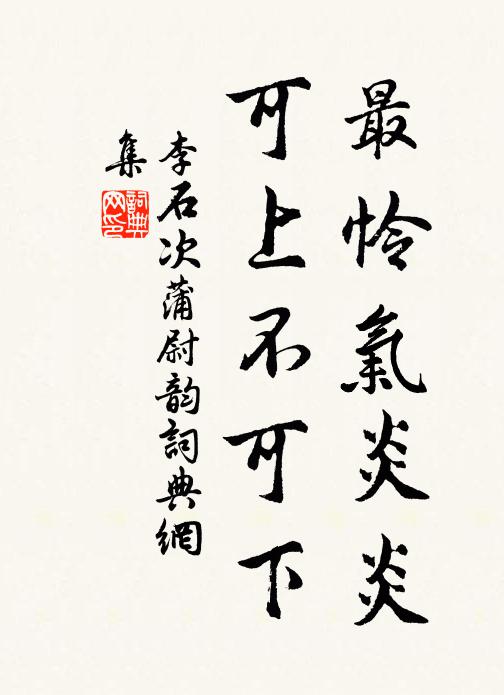 最怜氣炎炎
可上不可下
李石次蒲尉韵詞典網
集
詞典网印